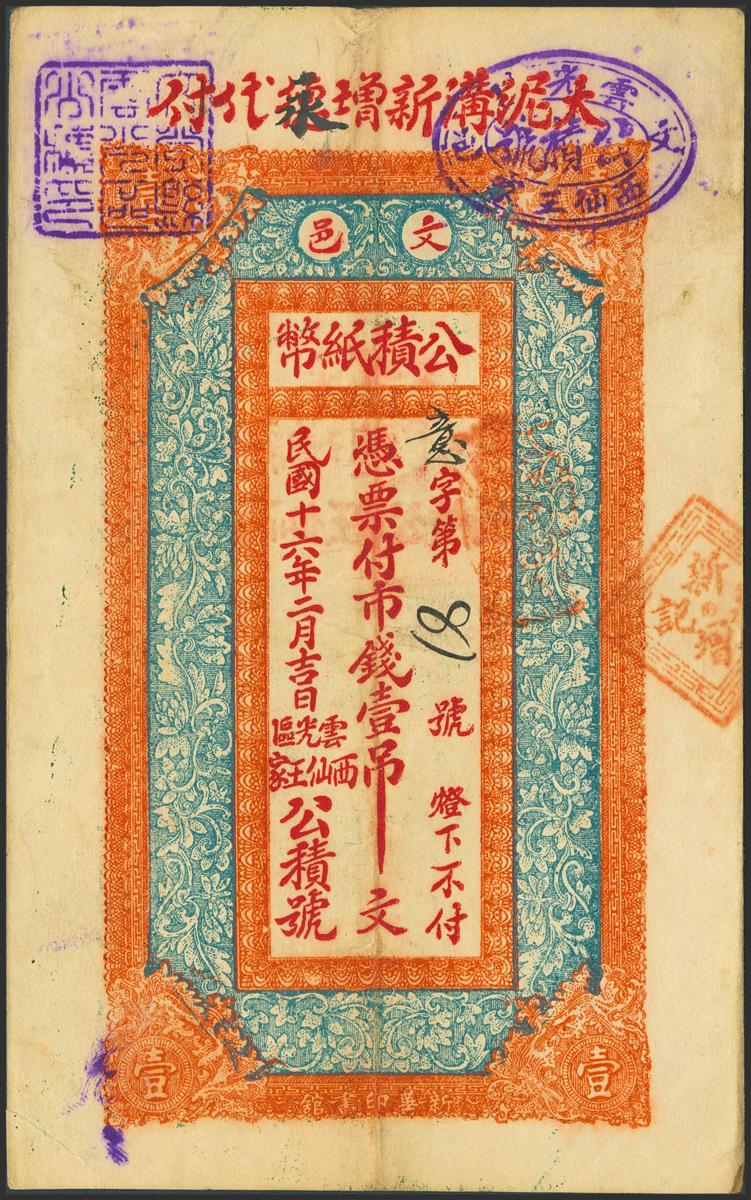 大泥溝新增代付
文邑
公積紙幣
意字第號 燈下不付
憑票付市錢壹吊文
民國十六年二月吉日
雲光區
西仙王家
公積號
壹
壹
新華印書館
雲光
文
西仙王
公積號
新增記